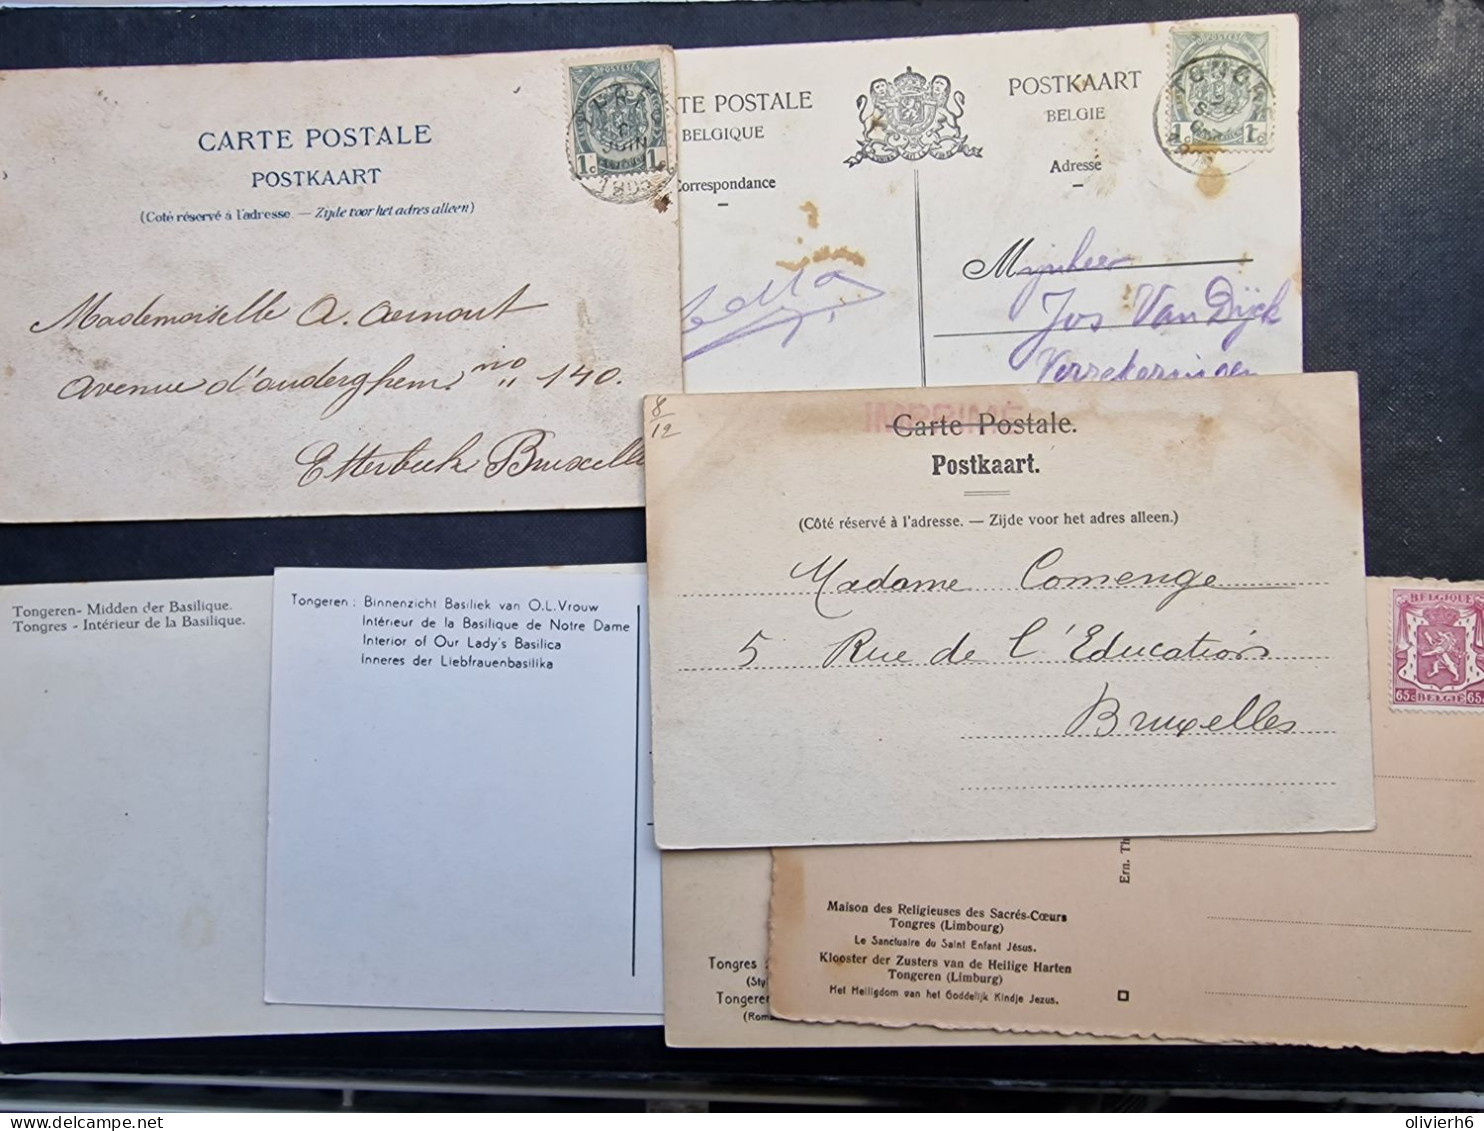 CARTE POSTALE
POSTKAART
(Coté réservé à l'adresse. — Zijde voor het adres alleen)
POSTES
1c 1c
JUIN
Mademoiselle A. Aernout
avenue d'auderghem, no 140.
Etterbeek Bruxelle
TE POSTALE
BELGIQUE
Correspondance
POSTKAART
BELGIE
Adresse
POSTES
1c 1c
TONG
Mijnheer
Jos Van Dijck
Verzekeringen
8/12
Carte Postale.
Postkaart.
(Côté réservé à l'adresse. — Zijde voor het adres alleen.)
Madame Comenge
5 Rue de l'Education
Bruxelles
Tongeren- Midden der Basilique.
Tongres - Intérieur de la Basilique.
Tongeren : Binnenzicht Basiliek van O.L.Vrouw
Intérieur de la Basilique de Notre Dame
Interior of Our Lady's Basilica
Inneres der Liebfrauenbasilika
BELGIQUE
65c BELGIË 65c
Ern. Th
Maison des Religieuses des Sacrés-Cœurs
Tongres (Limbourg)
Le Sanctuaire du Saint Enfant Jésus.
Klooster der Zusters van de Heilige Harten
Tongeren (Limburg)
Het Heiligdom van het Goddelijk Kindje Jezus.
Tongres
(Sty
Tongeren
(Roma
delcampe.net
olivierh6